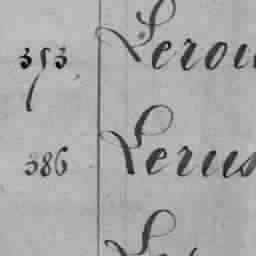 353 Lerou
386 Lerus